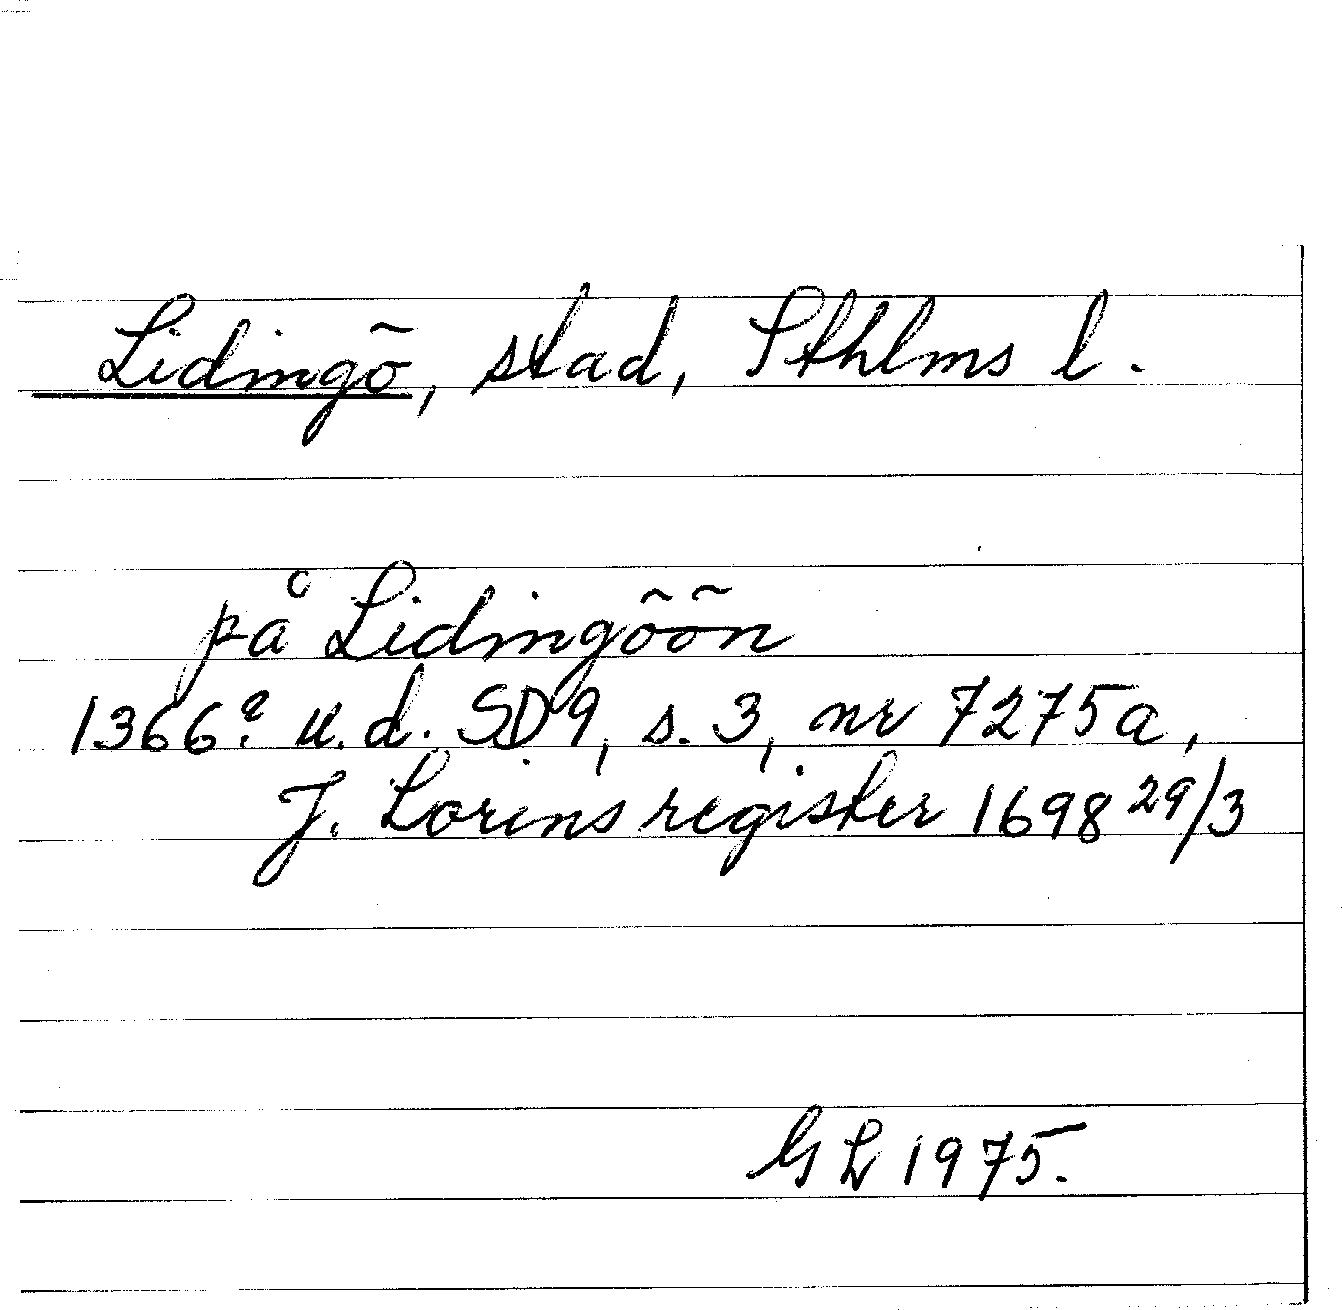 Lidingö, stad, Sthlms l.
på Lidingöön
1366? u.d. SD9, s. 3, nr 7275a,
J. Lorins register 1698 29/3
GL 1975.